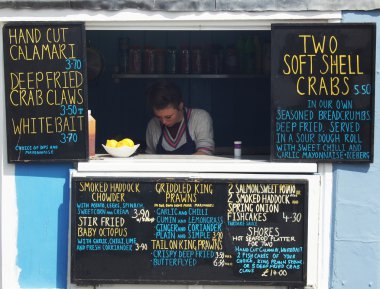 HAND CUT
CALAMARI
3.70
DEEP FRIED
CRAB CLAWS
3.50
WHITEBAIT
3.70
CHOICE OF DIPS AND
MAYONNAISE
TWO
SOFT SHELL
CRABS 5.50
IN OUR OWN
SEASONED BREADCRUMBS
DEEP FRIED, SERVED
IN A SOUR DOUGH ROLL
WITH SWEET CHILLI AND
GARLIC MAYONNAISE + ICEBERG
SMOKED HADDOCK
CHOWDER
WITH POTATO, LEEKS, SPINACH,
SWEETCORN AND CREAM 3.90
STIR FRIED
BABY OCTOPUS
WITH GARLIC, CHILLI, LIME,
AND FRESH CORRIANDER 3.90
GRIDDLED KING
PRAWNS
IN OUR OWN MARINADE
GARLIC AND CHILLI
CUMIN AND LEMONGRASS
GINGER AND CORIANDER
PLAIN AND SIMPLE 3.90
TAIL ON KING PRAWNS
CRISPY DEEP FRIED
BUTTERFLYED 6.30
2 SALMON, SWEET POTATO
2 SMOKED HADDOCK
SPRING ONION
FISHCAKES
4.30
SHORES
HOT SEAFOOD PLATTER
FOR TWO
HAND CUT CALAMARI, WHITEBAIT
2 FISH CAKES OF YOUR
CHOICE, KING PRAWN
5 DEEP FRIED CRAB
CLAWS
£14.00